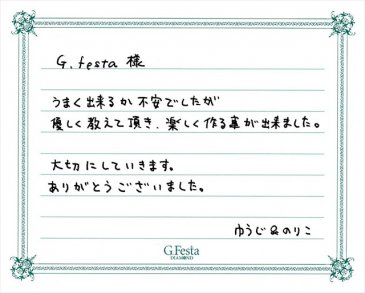 G.festa 様
うまく出来るか不安でしたが
優しく教えて頂き、楽しく作る事が出来ました。
大切にしていきます。
ありがとうございました。
ゆうじ&のりこ
G.Festa
DIAMOND